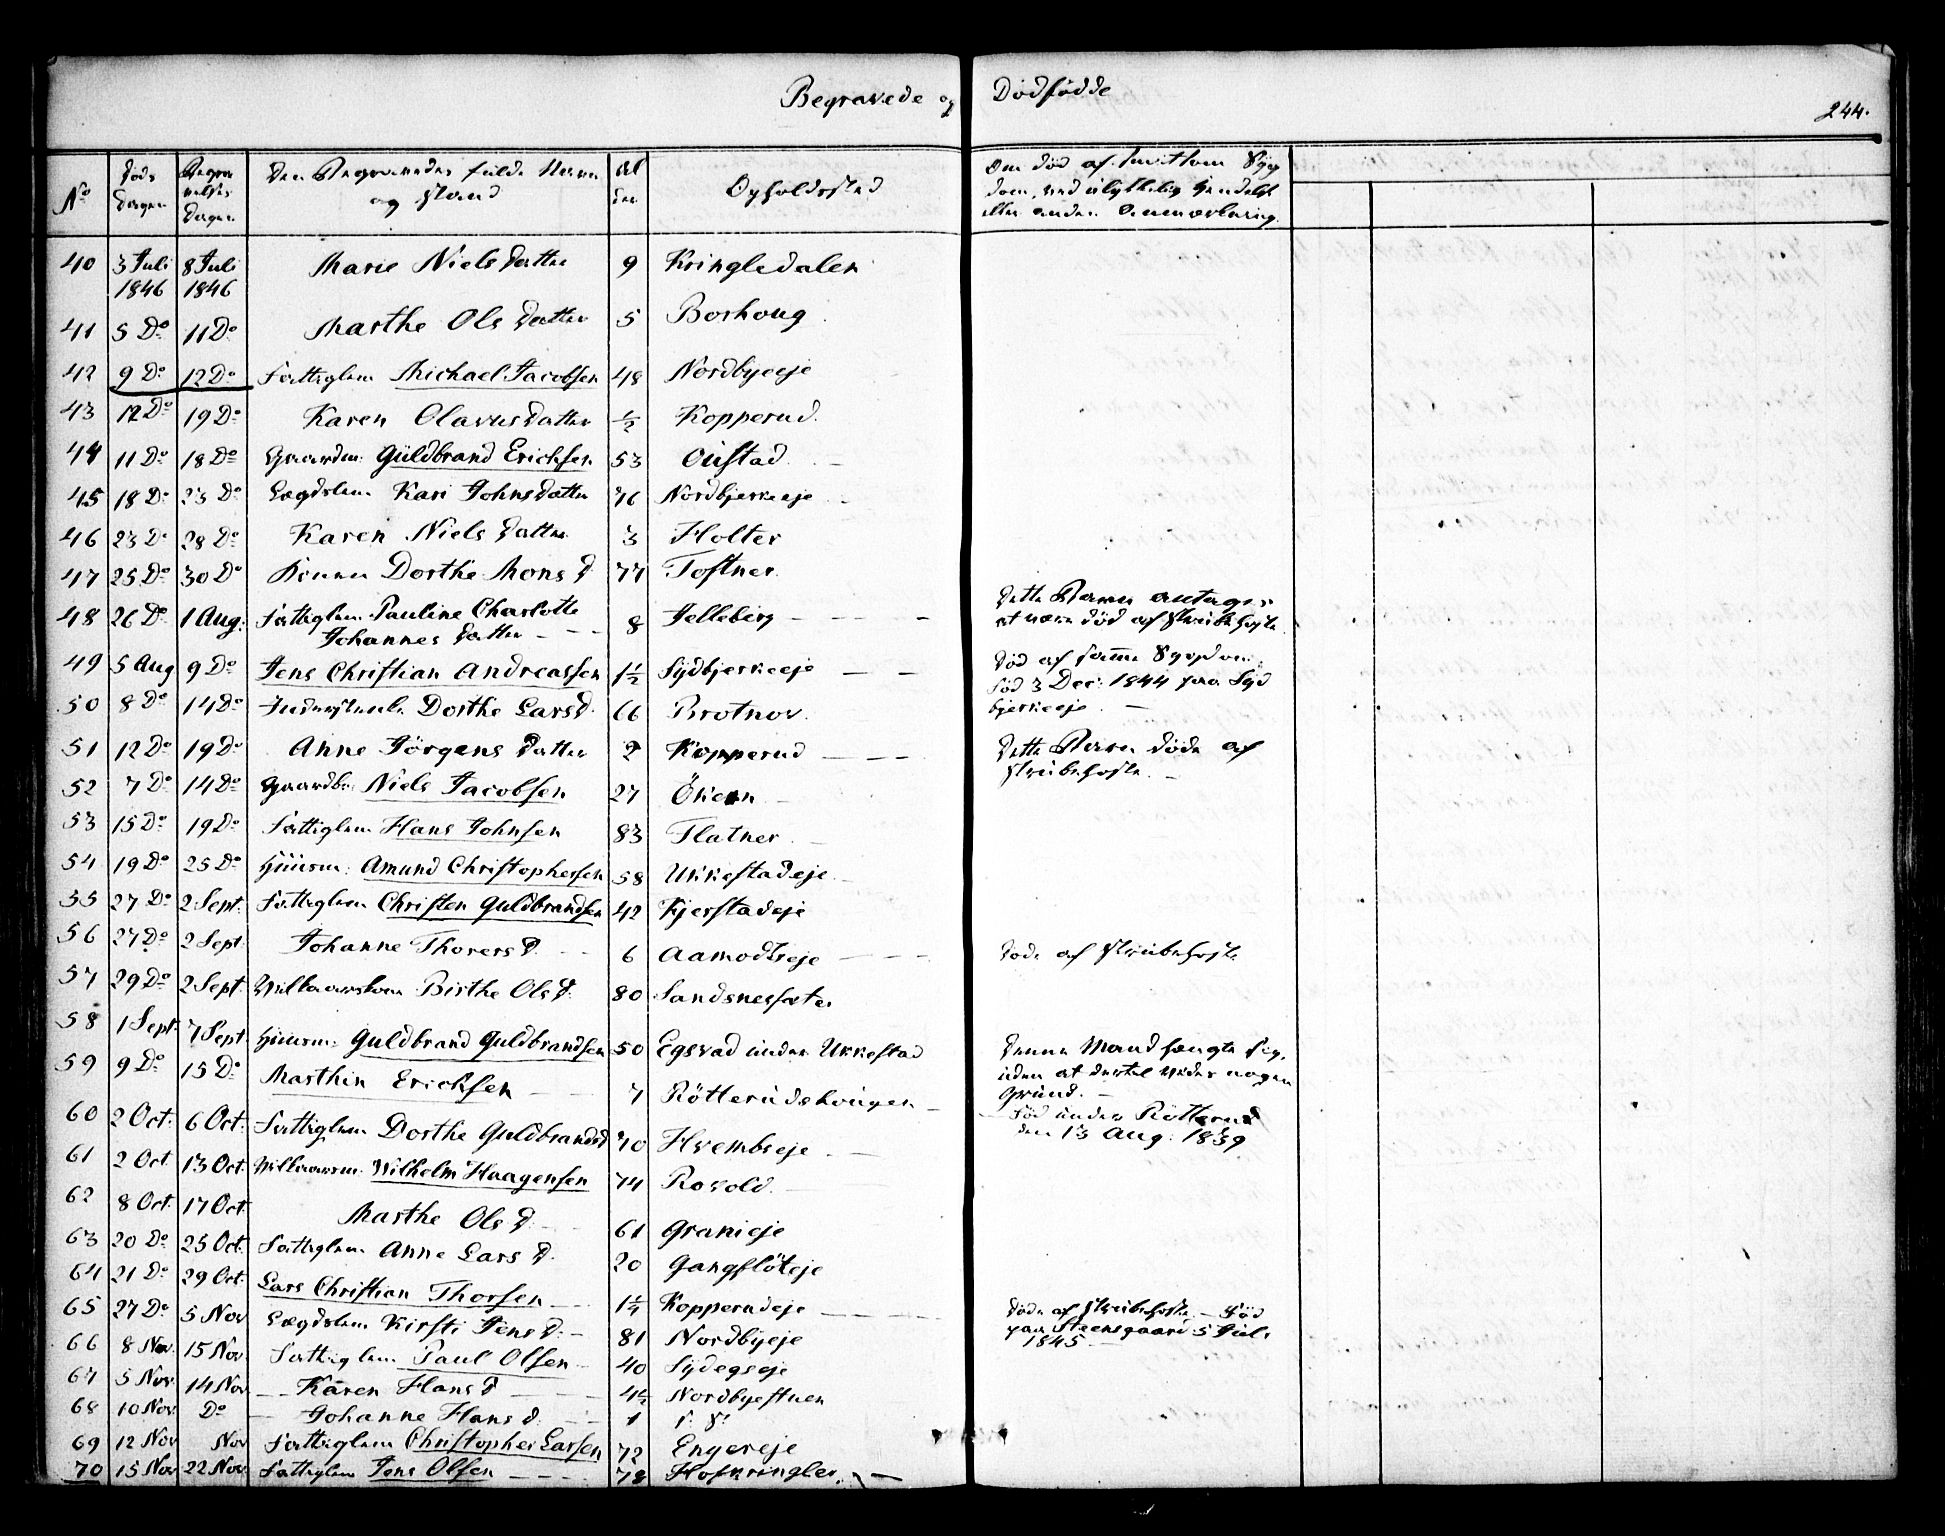 Begravede og Dødfødde
244.
No
Døds Dagen
Begravelses Dagen
Den Begravedes fulde Navn og Stand
Alder
Opholdssted
Om død af smitsom Syg
dom, ved ulykkelig Hændelse
eller anden Anmærkning.
40 3 Juli 1846 8 Juli 1846 Marie Nielsdatter 9 Kringledalen
41 5 Do 11 Do Marthe Olsdatter 5 Borhoug
42 9 Do 12 Do Fattiglem Michael Jacobsen 48 Nordbyeeje
43 12 Do 19 Do Karen Olavusdatter ½ Kopperud.
44 11 Do 18 Do Gaardm: Guldbrand Erichsen 53 Oustad
45 18 Do 23 Do Lægdslem Kari Johnsdatter 76 Nordbjerkeeje
46 23 Do 28 Do Karen Nielsdatter 3 Holter
47 25 Do 30 Do Konen Dorthe Mons D 77 Toftner
48 26 Do 1 Aug: Fattiglem Pauline Charlotte Johannesdatter 8 Jelleberg Dette Barn antages
at være død af Strubehoste.
49 5 Aug 9 Do Jens Christian Andreassen 1½ Sydbjerkeeje Død af samme Sygdom.
Fød 3 Dec: 1844 paa Syd
bjerkeeje.
50 8 Do 14 Do Inderstenke Dorthe Larsd. 66 Brotnov.
51 12 Do 19 Do Anne Jörgensdatter 2 Kopperud Dette Barn døde af
Strubehoste.
52 7 Do 14 Do Gaardbr: Niels Jacobsen 27 Ökern
53 15 Do 19 Do Fattiglem Hans Johnsen 83 Flatner
54 19 Do 25 Do Huusm: Amund Christophersen 58 Ukkestadeje
55 27 Do 2 Sept: Fattiglem Christen Guldbrandsen 42 Kjerstadeje
56 27 Do 2 Sept Johanne Thorers D. 6 Aamodtseje Døde af Strubehoste
57 29 Do 2 Sept. Birthe Ols D. 80 Sandsnesseter
58 1 Sept: 7 Sept Huusm: Guldbrand Guldbrandsen 50 Egsvad under Ukkestad Denne Mand hængte sig,
uden at dertil vides nogen
Grund.
59 9 Do 15 Do Marthin Erichsen 7 Fød under Rötterud
den 13 Aug: 1839
60 2 Oct: 6 Oct: Fattiglem Dorthe Guldbrandsd 70 Hvembseje
61 2 Oct. 13 Oct: Wilhelm Haagensen 74 Rovold.
62 8 Oct: 17 Oct: Marthe Ols D. 61 Granieje
63 20 Do 25 Oct. Fattiglem Anne Lars D. 20 Gangflöteje
64 21 Do 29 Oct: Lars Christian Thorsen 1¼ Kopperudeje Døde af Strubehoste – Fød
paa Steensgaard 5 Juli
1845
65 27 Do 5 Nov Lægdslem Kirsti Jens D. 81 Nordbyeje
66 8 Nov. 15 Nov. Fattiglem Paul Olsen 40 Sydegseje
67 5 Nov. 14 Nov Karen Hans D 4½ Nordbyestuen
68 10 Nov. Do Johanne Hans d. 1
69 12 Nov Nov Fattiglem Christopher Larsen 72 Engereje
70 15 Nov 22 Nov. Fattiglem Jens Olsen 78 Hofkringler.